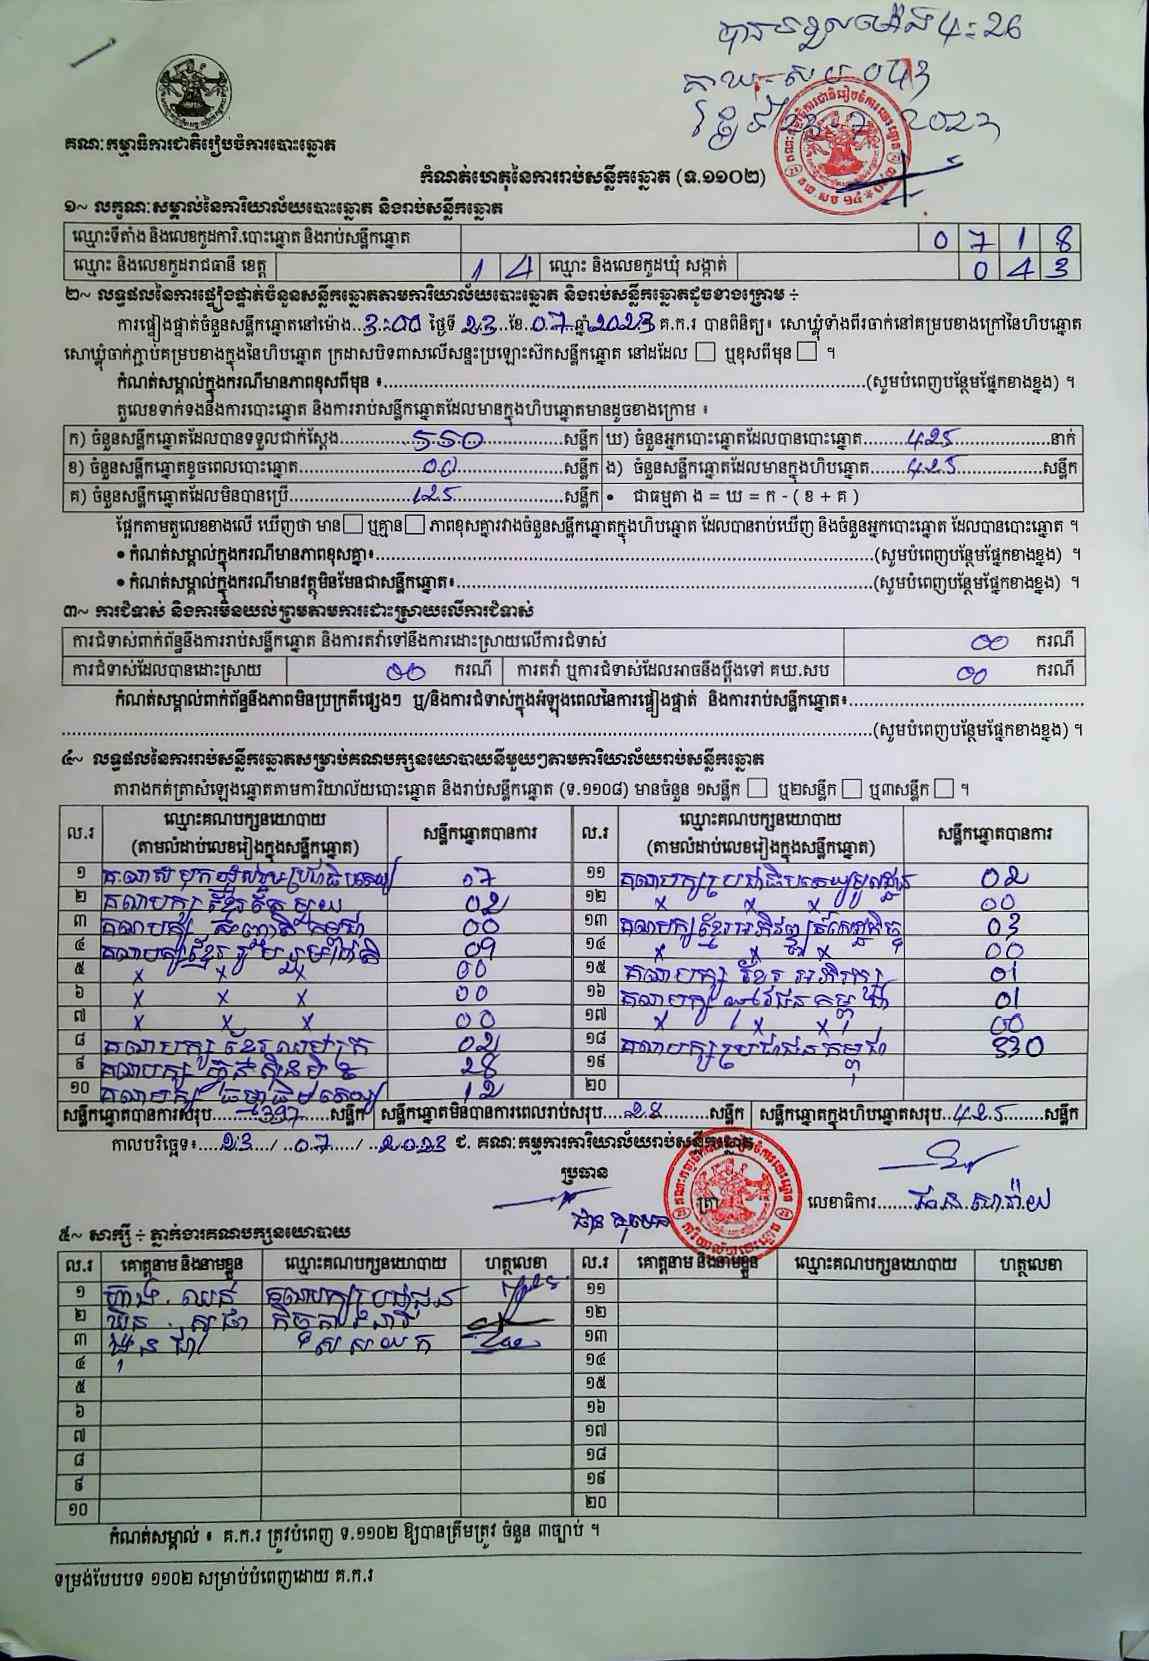 បានទទួលម៉ោង 4:26
គឃ-សប ០៤៣
2023
គណៈកម្មាធិការជាតិរៀបចំការបោះឆ្នោត
កំណត់ហេតុនៃការរាប់សន្លឹកឆ្នោត (ទ.១១០២)
១~ លក្ខណៈសម្គាល់នៃការិយាល័យបោះឆ្នោត និងរាប់សន្លឹកឆ្នោត
ឈ្មោះទីតាំង និងលេខកូដការិ.បោះឆ្នោត និងរាប់សន្លឹកឆ្នោត 0 7 1 8
ឈ្មោះ និងលេខកូដរាជធានី ខេត្ត 1 4 ឈ្មោះ និងលេខកូដឃុំ សង្កាត់ 0 4 3
២~ លទ្ធផលនៃការផ្ទៀងផ្ទាត់ចំនួនសន្លឹកឆ្នោតតាមការិយាល័យបោះឆ្នោត និងរាប់សន្លឹកឆ្នោតដូចខាងក្រោម ÷
ការផ្ទៀងផ្ទាត់ចំនួនសន្លឹកឆ្នោតនៅម៉ោង..3:00 ថ្ងៃទី 23..ខែ.07.ឆ្នាំ 2023 គ.ក.រ បានពិនិត្យ៖ សោឃ្លុំទាំងពីរចាក់នៅគម្របខាងក្រៅនៃហិបឆ្នោត
សោឃ្លុំចាក់ភ្ជាប់គម្របខាងក្នុងនៃហិបឆ្នោត ក្រដាសបិទពាសលើសន្ទះប្រឡោះស៊កសន្លឹកឆ្នោត នៅដដែល ☐ ឬខុសពីមុន ☐ ។
កំណត់សម្គាល់ក្នុងករណីមានភាពខុសពីមុន ៖..........(សូមបំពេញបន្ថែមផ្នែកខាងខ្នង) ។
តួលេខទាក់ទងនឹងការបោះឆ្នោត និងការរាប់សន្លឹកឆ្នោតដែលមានក្នុងហិបឆ្នោតមានដូចខាងក្រោម ៖
ក) ចំនួនសន្លឹកឆ្នោតដែលបានទទួលជាក់ស្តែង..........550..........សន្លឹក ឃ) ចំនួនអ្នកបោះឆ្នោតដែលបានបោះឆ្នោត..........425..........នាក់
ខ) ចំនួនសន្លឹកឆ្នោតខូចពេលបោះឆ្នោត..........00..........សន្លឹក ង) ចំនួនសន្លឹកឆ្នោតដែលមានក្នុងហិបឆ្នោត..........425..........សន្លឹក
គ) ចំនួនសន្លឹកឆ្នោតដែលមិនបានប្រើ..........125..........សន្លឹក • ជាធម្មតា ង = ឃ = ក - ( ខ + គ )
ផ្អែកតាមតួលេខខាងលើ ឃើញថា មាន ☐ ឬគ្មាន ☐ ភាពខុសគ្នារវាងចំនួនសន្លឹកឆ្នោតក្នុងហិបឆ្នោត ដែលបានរាប់ឃើញ និងចំនួនអ្នកបោះឆ្នោត ដែលបានបោះឆ្នោត ។
• កំណត់សម្គាល់ក្នុងករណីមានភាពខុសគ្នា៖..........(សូមបំពេញបន្ថែមផ្នែកខាងខ្នង) ។
• កំណត់សម្គាល់ក្នុងករណីមានវត្ថុមិនមែនជាសន្លឹកឆ្នោត៖..........(សូមបំពេញបន្ថែមផ្នែកខាងខ្នង) ។
៣~ ការជំទាស់ និងការមិនយល់ព្រមតាមការដោះស្រាយលើការជំទាស់
ការជំទាស់ពាក់ព័ន្ធនឹងការរាប់សន្លឹកឆ្នោត និងការតវ៉ាទៅនឹងការដោះស្រាយលើការជំទាស់ 00 ករណី
ការជំទាស់ដែលបានដោះស្រាយ 00 ករណី ការតវ៉ា ឬការជំទាស់ដែលអាចនឹងប្តឹងទៅ គឃ.សប 00 ករណី
កំណត់សម្គាល់ពាក់ព័ន្ធនឹងភាពមិនប្រក្រតីផ្សេងៗ ឬ/និងការជំទាស់ក្នុងអំឡុងពេលនៃការផ្ទៀងផ្ទាត់ និងការរាប់សន្លឹកឆ្នោត៖..........
..........(សូមបំពេញបន្ថែមផ្នែកខាងខ្នង) ។
៤~ លទ្ធផលនៃការរាប់សន្លឹកឆ្នោតសម្រាប់គណបក្សនយោបាយនីមួយៗតាមការិយាល័យរាប់សន្លឹកឆ្នោត
តារាងកត់ត្រាសំឡេងឆ្នោតតាមការិយាល័យបោះឆ្នោត និងរាប់សន្លឹកឆ្នោត (ទ.១១០៨) មានចំនួន ១សន្លឹក ☐ ឬ២សន្លឹក ☐ ឬ៣សន្លឹក ☐ ។
ល.រ ឈ្មោះគណបក្សនយោបាយ (តាមលំដាប់លេខរៀងក្នុងសន្លឹកឆ្នោត) សន្លឹកឆ្នោតបានការ ល.រ ឈ្មោះគណបក្សនយោបាយ (តាមលំដាប់លេខរៀងក្នុងសន្លឹកឆ្នោត) សន្លឹកឆ្នោតបានការ
១ 07 ១១ គណបក្សប្រជាធិបតេយ្យមូលដ្ឋាន 02
២ គណបក្សខ្មែរតែមួយ 02 ១២ x x x 00
៣ គណបក្ស សញ្ជាតិកម្ពុជា 00 ១៣ គណបក្សខ្មែរអភិវឌ្ឍន៍សេដ្ឋកិច្ច 03
៤ គណបក្សខ្មែររួបរួមជាតិ 09 ១៤ x x x 00
៥ x x x 00 ១៥ គណបក្ស ខ្មែរ អភិរក្ស 01
៦ x x x 00 ១៦ គណបក្ស យុវជនកម្ពុជា 01
៧ x x x 00 ១៧ x x x 00
៨ គណបក្ស ខែ្មរ ឈប់ក្រ 02 ១៨ គណបក្សប្រជាជនកម្ពុជា 330
៩ គណបក្ស ហ្វ៊ុនស៊ិនប៉ិច 28 ១៩
១០ គណបក្ស ធម្មាធិបតេយ្យ 12 ២០
សន្លឹកឆ្នោតបានការសរុប....397....សន្លឹក សន្លឹកឆ្នោតមិនបានការពេលរាប់សរុប..28....សន្លឹក សន្លឹកឆ្នោតក្នុងហិបឆ្នោតសរុប..425....សន្លឹក
កាលបរិច្ឆេទ៖....23..../..07..../..2023 ជ. គណៈកម្មការការិយាល័យរាប់សន្លឹកឆ្នោត
ប្រធាន ត្រា លេខាធិការ..........
៥~ សាក្សី ÷ ភ្នាក់ងារគណបក្សនយោបាយ
ល.រ គោត្តនាម និងនាមខ្លួន ឈ្មោះគណបក្សនយោបាយ ហត្ថលេខា ល.រ គោត្តនាម និងនាមខ្លួន ឈ្មោះគណបក្សនយោបាយ ហត្ថលេខា
១ គណបក្សប្រជាជន ១១
២ ១២
៣ ស ស យ ក ១៣
៤ ១៤
៥ ១៥
៦ ១៦
៧ ១៧
៨ ១៨
៩ ១៩
១០ ២០
កំណត់សម្គាល់ ៖ គ.ក.រ ត្រូវបំពេញ ទ.១១០២ ឱ្យបានត្រឹមត្រូវ ចំនួន ៣ច្បាប់ ។
ទម្រង់បែបបទ ១១០២ សម្រាប់បំពេញដោយ គ.ក.រ